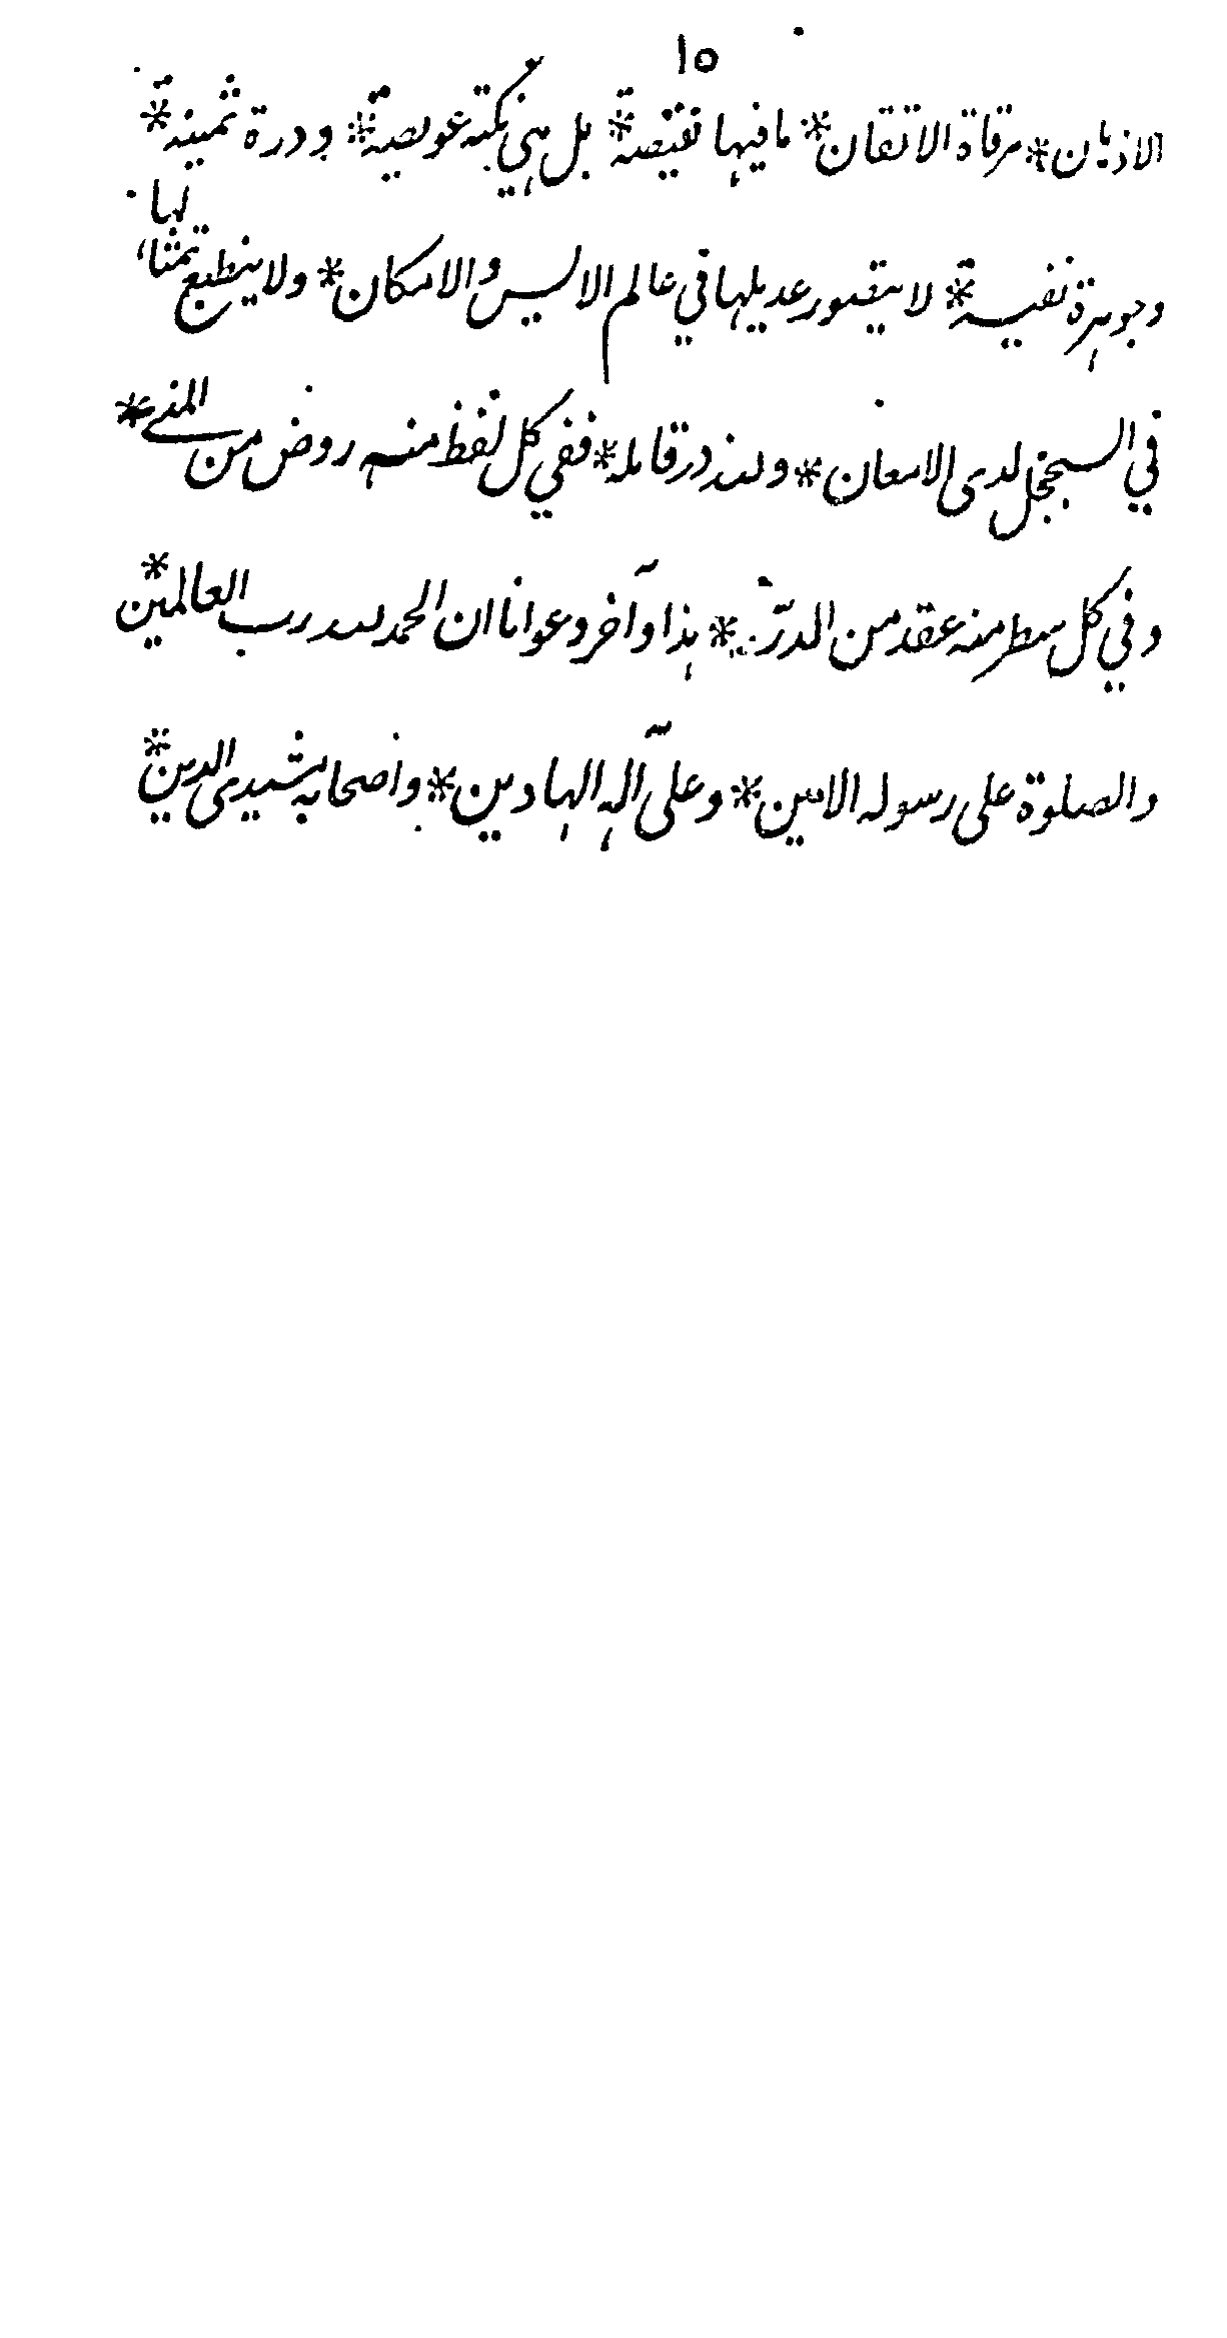 ١٥
الاذهان * مرقاة الاتقان * ما فيها نقيصة * بل هي نكتة عويصة * ودرة ثمينة *
وجوهرة نفيسة * لا يتصور عديلها في عالم الاليس والامكان * ولا ينطبع تمثالها
في السجنجل لدى الامعان * ولله در قائله * ففي كل لفظ منه روض من المنى *
وفي كل سطر منه عقد من الدرر * هذا وآخر دعوانا ان الحمد لله رب العالمين *
والصلوة على رسوله الامين * وعلى آله الهادين * واصحابه مشيدي الدين *